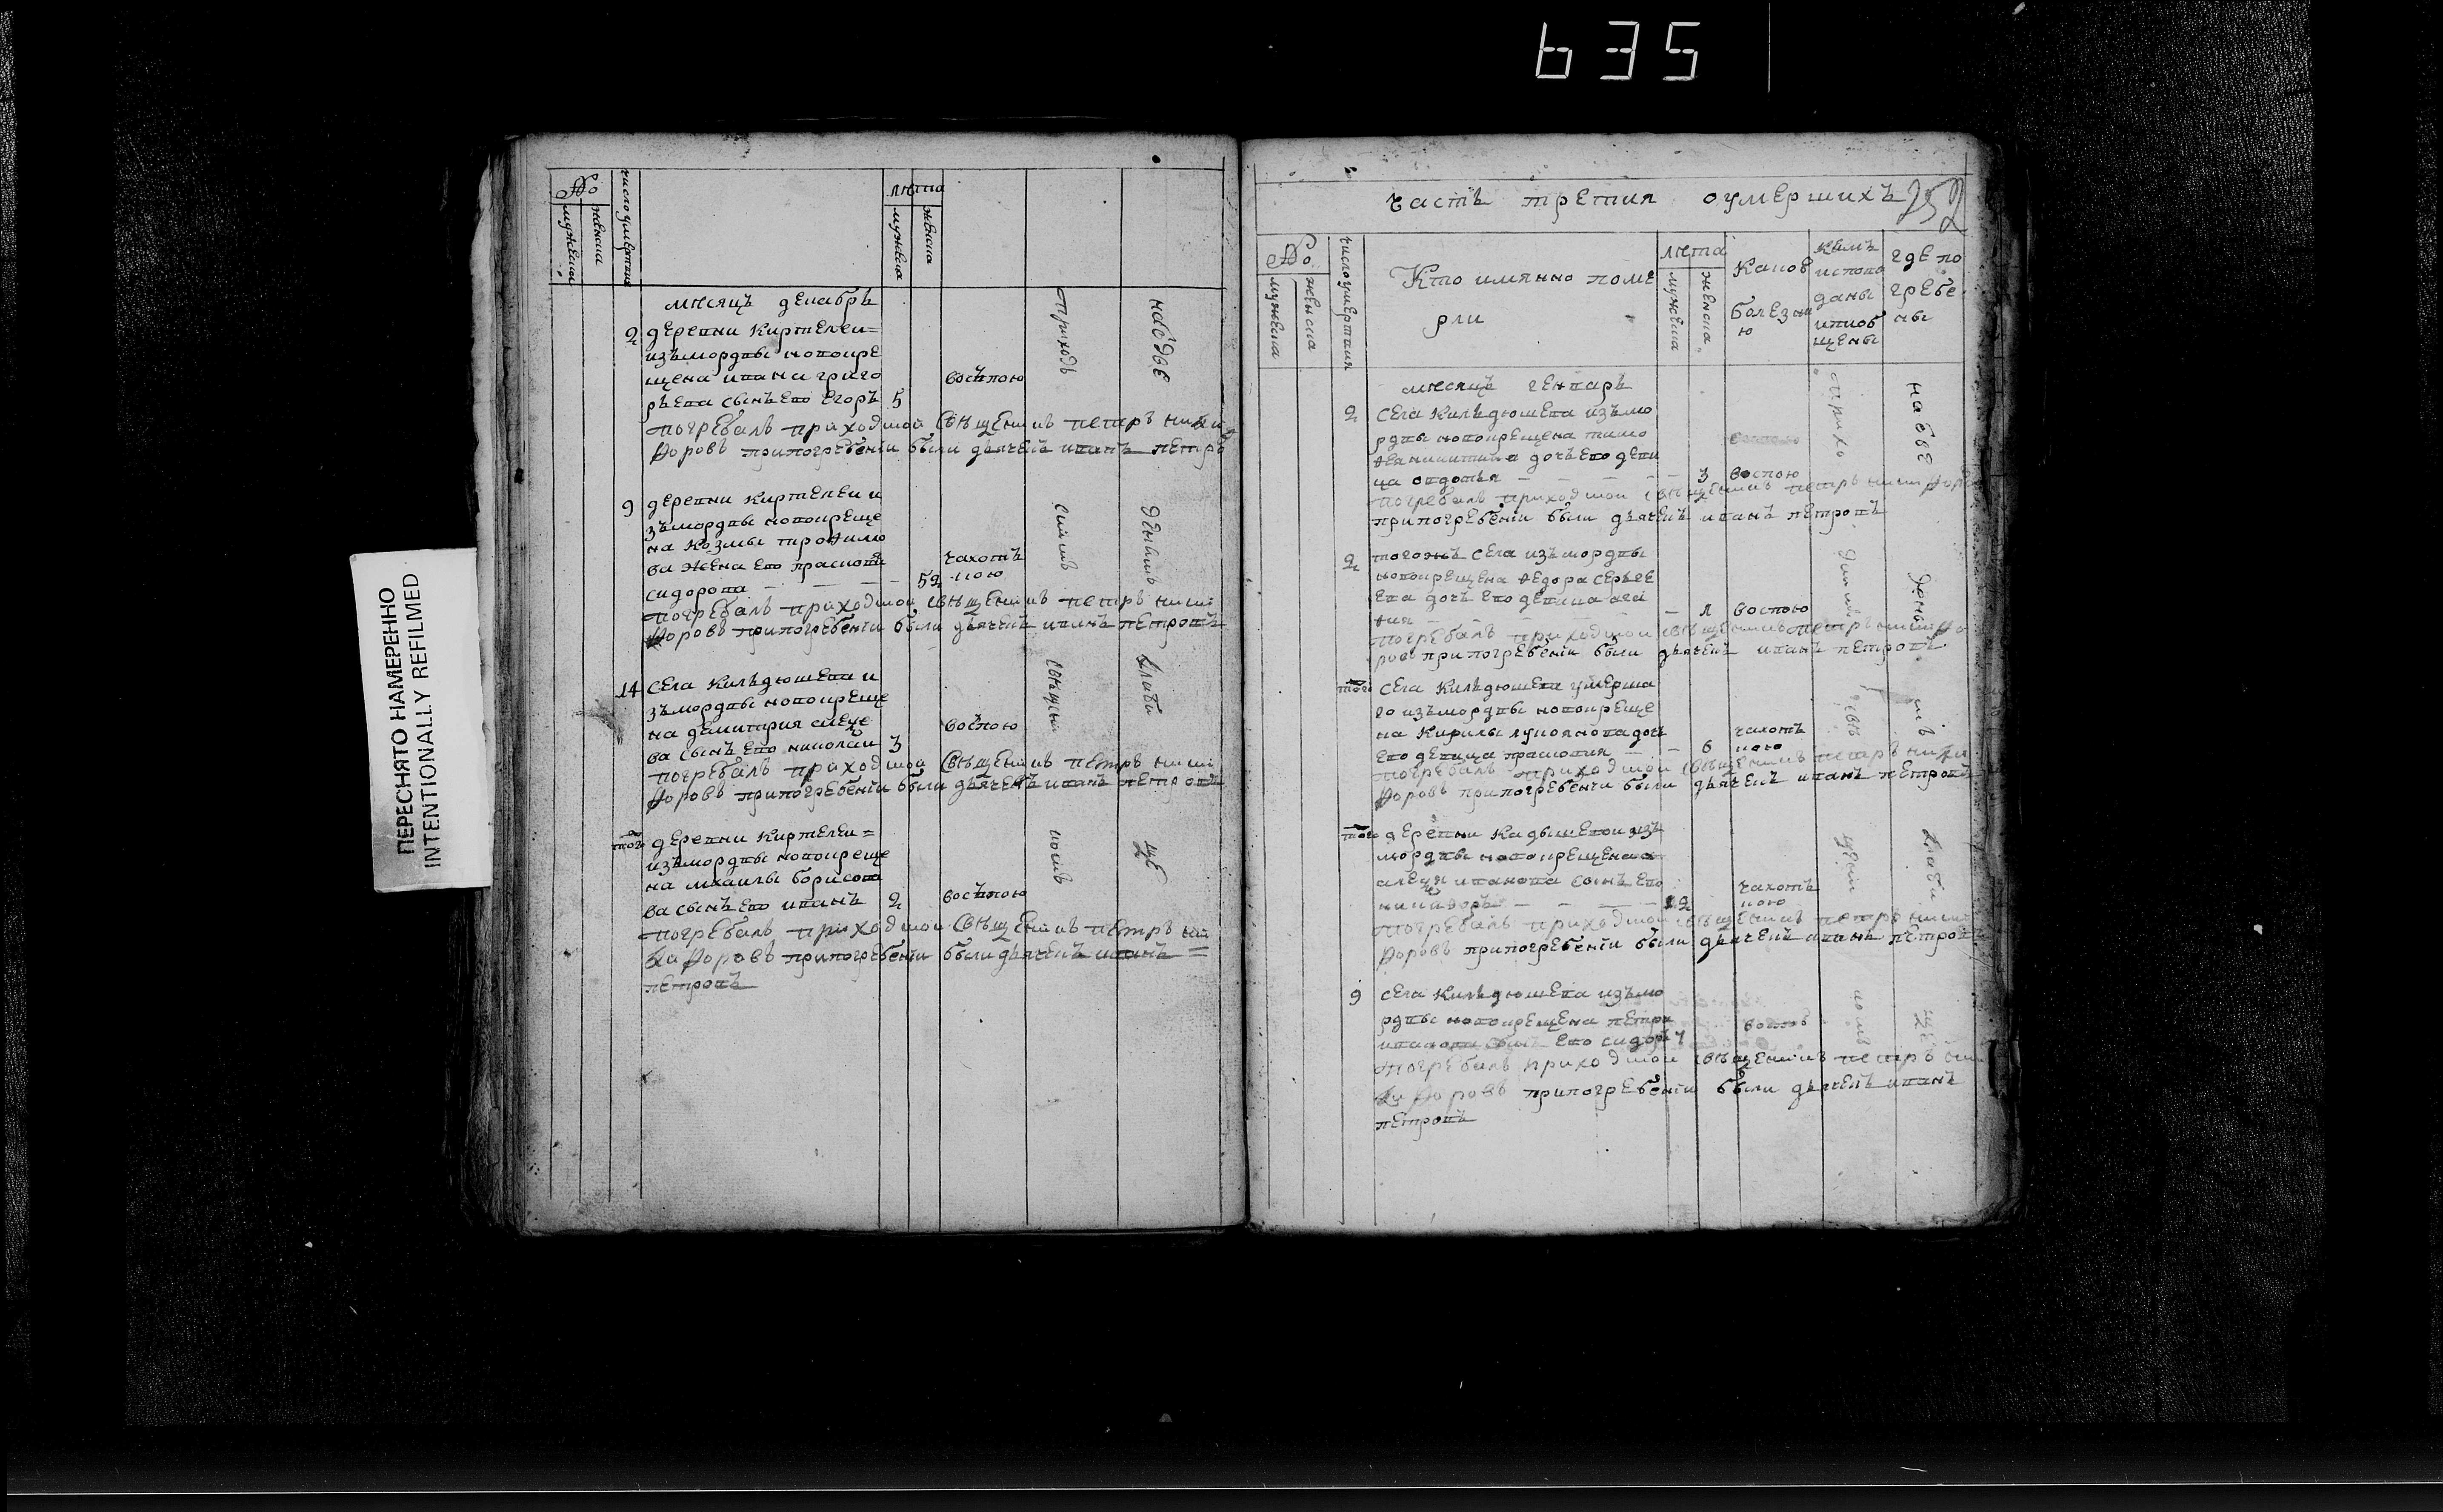 635
ПЕРЕСНЯТО НАМЕРЕННО
INTENTIONALLY REFILMED
№
мужеска
женска
число умертвия
лѣта
мужеска
женска
мѣсяцъ декабрь
2 деревни Киртелеи=
изъ мордвы новокре
щена ивана григо
рьева сынъ его егоръ 5 воспою
погребалъ приходской свѣщенникъ петръ ники
форовъ при погребенїи были дьячекъ иванъ петро
9 деревни Киртелеи и
зъ мордвы новокреще
на Козмы трофимо
ва жена его прасковя
сидорова 52 чахоть
кою
погребалъ приходской свѣщенникъ петръ ники
форовъ при погребенїи были дьячекъ иванъ петровъ
14 села Кильдюшева и
зъ мордвы новокреще
на димитрия алеѯе
ва сынъ его николаи 3 воспою
погребалъ приходской свѣщенникъ петръ ники
форовъ при погребенїи были дьячекъ иванъ петровъ
того деревни Киртелеи=
изъ мордвы новокреще
на михаилы борисова
ва сынъ его иванъ 2 воспою
погребалъ приходской свѣщенникъ петръ ни
кифоровъ при погребенїи были дьячекъ иванъ =
петровъ
приходъ
скимъ
свѣщен
никомъ
на обѣдве
денномъ
кладби
ще
часть третия оумершихъ 252
№
мужеска
женска
число умертвия
Кто имянно поме
рли
лѣта
мужеска
женска
Какою
болезни
ю
кѣмъ
исповѣ
даны
и приоб
щены
где по
гребе
ны
мѣсяцъ генварь
2 села Кильдюшева изъ мо
рдвы новокрещена тимо
фея никитина дочь его деви
ца овдотья 3 воспою
погребалъ приходской свѣщенникъ петръ никифоро
при погребенїи были дьячекъ иванъ петровъ
2 тогожъ села изъ мордвы
новокрещена федора сергѣе
ева дочь его девица ага
фия 1 воспою
погребалъ приходской свѣщенникъ петръ никифо
ровъ при погребенїи были дьячекъ иванъ петровъ
того села Кильдюшева умерша
го изъ мордвы новокреще
на Кирилы лукоянова дочь
его девица прасковия 6 чахоть
кою
погребалъ приходской свѣщенникъ петръ ники
форовъ при погребенїи были дьячекъ иванъ петровъ
того деревни Кадышевои изъ
мордвы новокрещена
алеѯея иванова сынъ его
никифоръ 12 чахоть
кою
погребалъ приходской свѣщенникъ петръ ники
форовъ при погребенїи были дьячекъ иванъ петровъ
9 села Кильдюшева изъ мо
рдвы новокрещена петра
иванова сынъ его сидоръ 4
погребалъ приходской свѣщенникъ петръ ни
кифоровъ при погребенїи были дьячекъ иванъ
петровъ